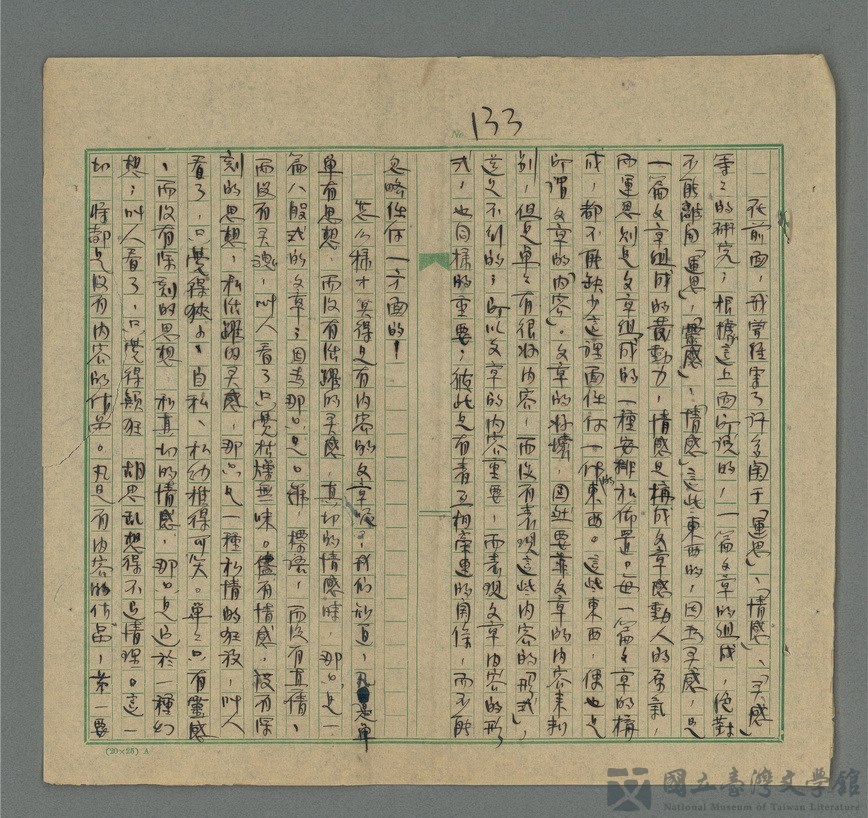 No. 133
在前面，我曾經寫了許多關于「運思」、「情感」、「灵感」
等々的研究，根據這上面所說的，一篇文章的組成，絕對
不能離開「運思」，「靈感」，「情感」這些東西的，因為灵感，是
一篇文章組成的發動力，情感是構成文章感動人的原氣，
而運思則是文章組成的一種安排和佈置。每一篇文章的構
成，都不能缺少這裡面任何一個東西。這些東西，便也是
所謂文章的「內容」。文章的好壞，固然要靠文章的內容來判
別，但是單々有很好內容，而沒有表現這些內容的「形式」，
還是不行的；所以文章的內容重要，而表現文章內容的形
式，也同樣的重要，彼此是有着互相關連的關係，而不能
忽略任何一方面的！
怎么樣才算得是有內容的文章呢？我們知道，凡是單
單有思想，而沒有活躍的灵感，真切的情感時，那只是一
篇八股式的文章；因為那只是口號，標語，而沒有真情、
而沒有灵魂，叫人看了只覺枯燥無味。儘有情感，沒有深
刻的思想，和活躍的灵感，那只是一種私情的狂放，叫人
看了，只覺得狹小、自私、和幼稚得可笑。單々只有靈感
，而沒有深刻的思想和真切的情感，那只是近於一種幻
想，叫人看了，只覺得顛狂 胡思乱想得不近情理。這一
切 將都是沒有內容的作品。凡是有內容的作品，第一要
(20×25) A
國立臺灣文學館
National Museum of Taiwan Literature